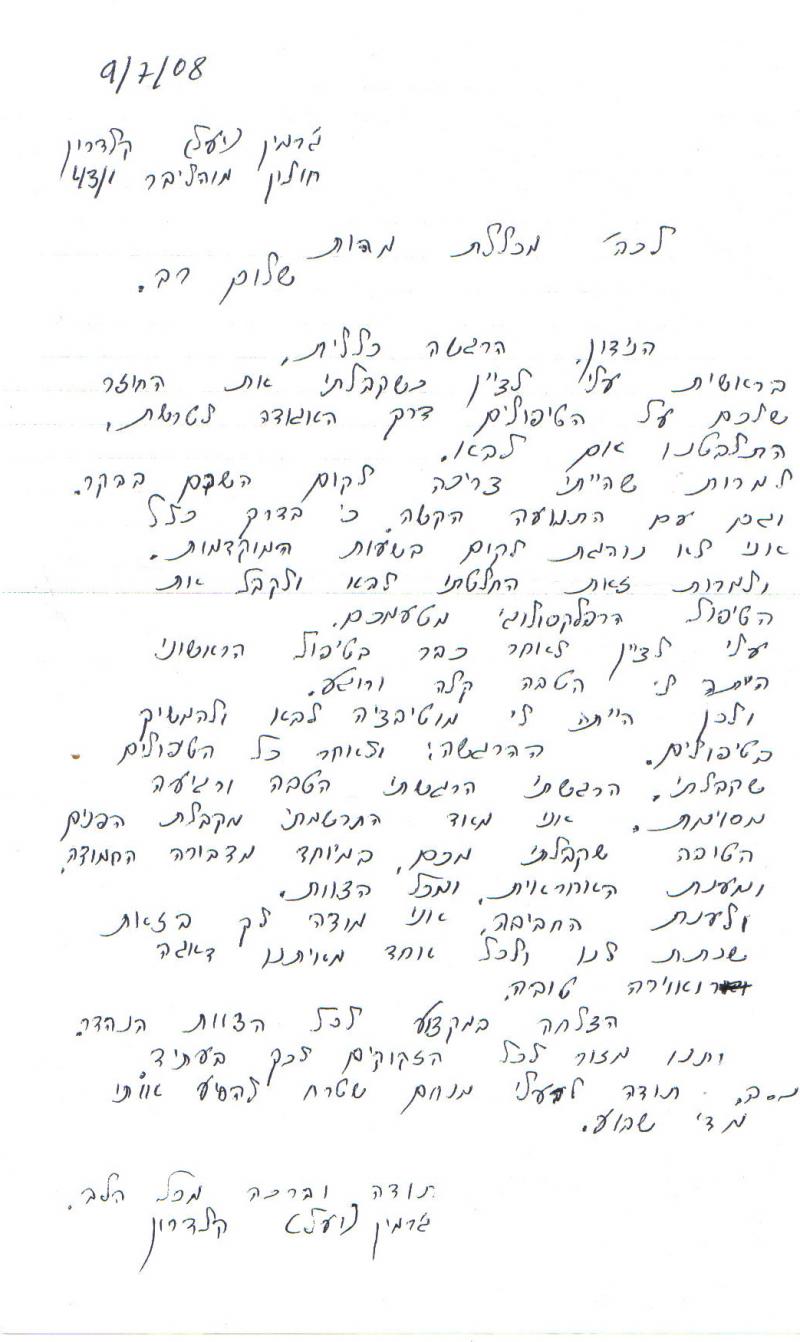 9/7/08
ג'רמין קלדרון
חולין מוהליבר 43/1
לכה' מכללת מהות
שלום רב.
הנידון, הרגשה כללית,
בראשית עלי לציין כשקבלתי את החוזר
שלכם על הטיפולים דרך האגודה לטרשת,
התלבטנו אם לבא.
למרות שהייתי צריכה לקום השכם בבקר.
וגם עם התנועה הקשה, כי בדרך כלל
אני לא נוהגת לקום בשעות המוקדמות.
ולמרות זאת החלטתי לבא ולקבל את
הטיפול הרפלקסולוגי מטעמכם.
עלי לציין לאחר כבר בטיפול הראשוני
הייתה לי הטבה קלה ורוגע.
ולכן הייתה לי מוטיבציה לבא ולהמשיך
בטיפולים. ההרגשה: לאחר כל הטפולים
שקבלתי, הרגשתי הרגשתי הטבה ורגיעה
מסוימת. אני מאוד התרשמתי מקבלת הפנים
הטובה שקבלתי מכם, במיוחד מדבורה החמודה,
ומענת האחראית, ומכל הצוות.
ולענת החביבה, אני מודה לך בזאת
שנתת לנו ולכל אחד מאיתנו דאגה
ואווירה טובה.
הצלחה במקצוע לכל הצוות הנהדר.
ותנו מזור לכל הזקוקים לכך בעתיד
נ.ב. תודה לבעלי מנחם שטרח להסיע אותי
מדי שבוע.
תודה וברכה מכל הלב.
ג'רמין קלדרון